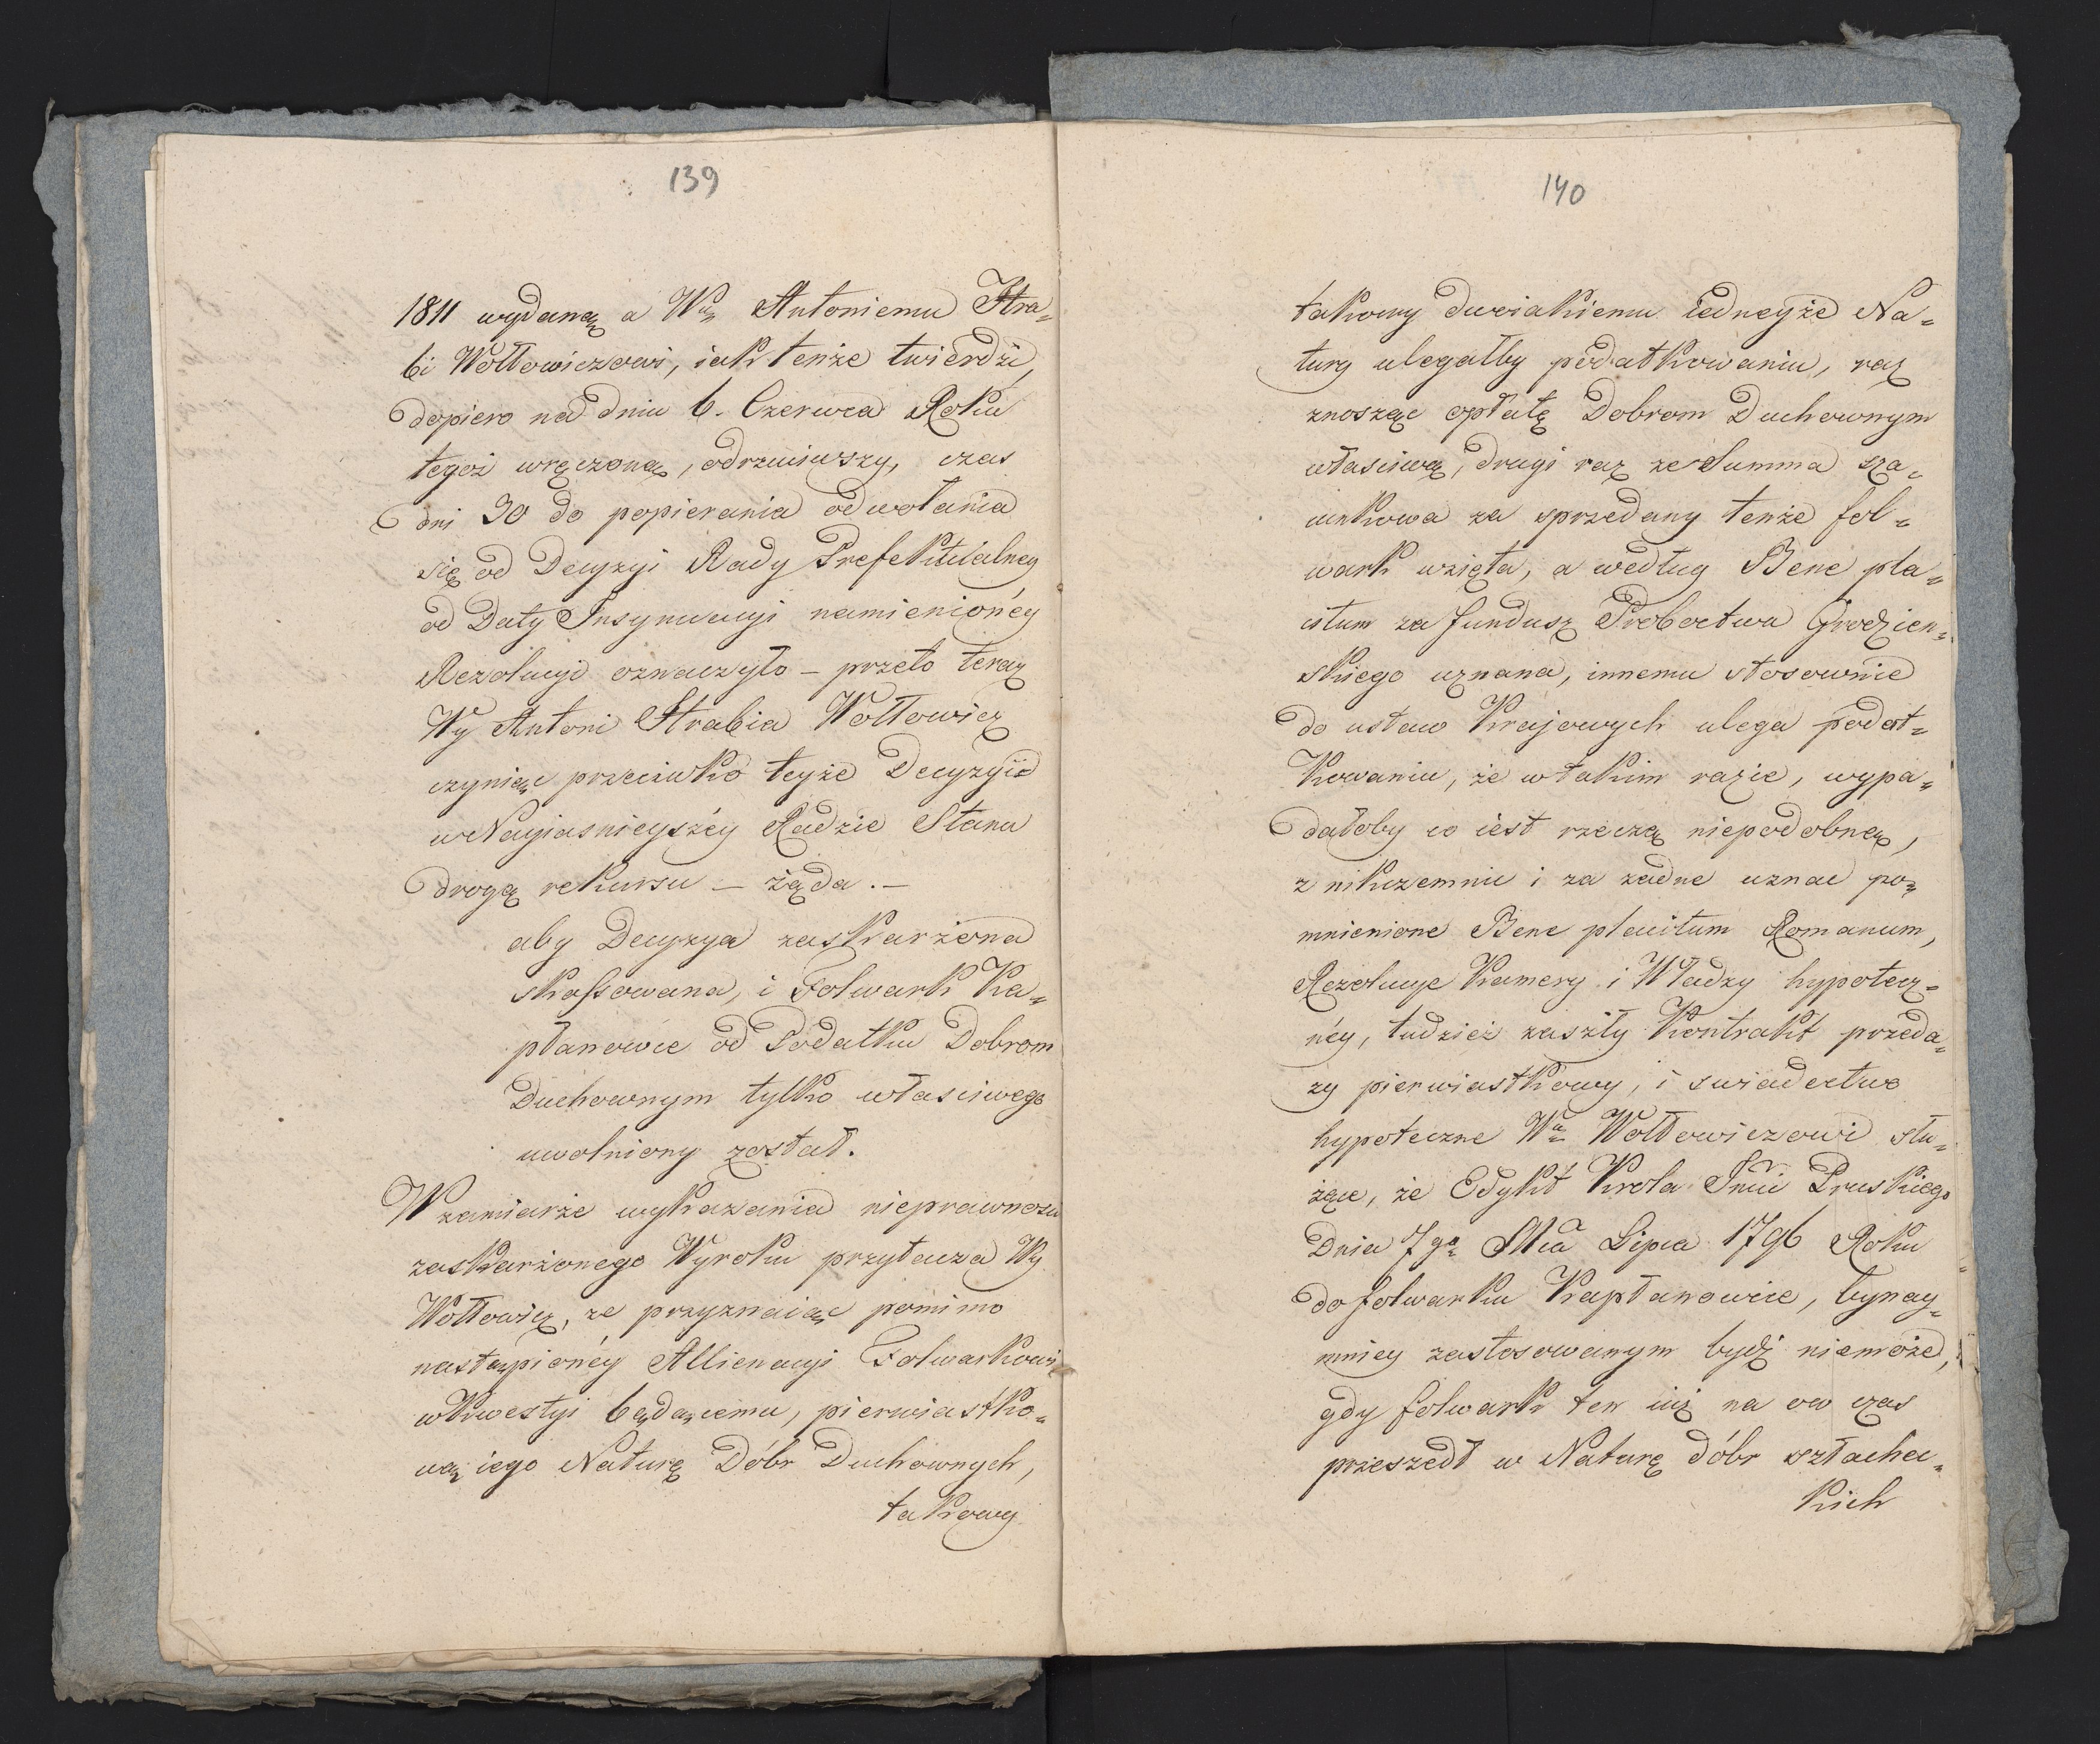 139
1811 wydaną a Wmu Antoniemu Hra=
bi Wołłowiczowi, iak tenże twierdzi,
dopiero na dniu 6. Czerwca Roku
tegoż wręczoną, odrzuciwszy, czas
dni 30 do popierania odwołania
się od Decyzyi Rady Prefekturalney
od Daty Insynuacyi namienioney
Rezolucyi oznaczyło – przeto teraz
Wy Antoni Hrabia Wołłowicz
czyniąc przeciwko teyże Decyzyi
w Nayiasnieyszéy Radzie Stanu
drogą rekursu – żąda. –
aby Decyzya zaskarżona
skassowana, i Folwark Ka=
płanowce od Podatku Dobrom
Duchownym tylko własciwego
uwolniony został.
W zamiarze wykazania nieprawnosci
zaskarżonego Wyroku przytacza Wy
Wołłowicz, ze przyznaiąc pomimo
nastąpionéy Allienacyi Folwarkowi
w kwestyi będącemu, pierwiastko=
wą iego Naturę Dóbr Duchownych,
takowy
140
takowy dwoiakiemu iedneyże Na=
tury ulegałby podatkowaniu, raz
znosząc opłatę Dobrom Duchownym
własciwą, drugi raz ze Summa sza=
cunkowa za sprzedany tenże fol=
wark wzięta, a według Bene pla=
citum za fundusz Probostwa Grodzien=
skiego uznana, innemu stosownie
do ustaw Krajowych ulega podat=
kowaniu, że w takim razie, wypa=
dałoby co iest rzeczą niepodobną,
znikczemnić i za żadne uznać po=
mnienione Bene placitum Romanum,
Rezolucye Kamery i Władzy hypotecz=
néy, tudzież zaszły Kontrakt przeda=
zy pierwiastkowy, i swiadectwo
hypoteczne Wmu Wołłowiczowi słu=
żące, że Edykt Krola Jmci Pruskiego
Dnia 7go Mca Lipca 1796 Roku
do folwarku Kapłanowce, bynay=
mniey zastosowanym bydź niemoże,
gdy folwark ten iuż na ow czas
przeszedł w Naturę dóbr szlachec=
kich